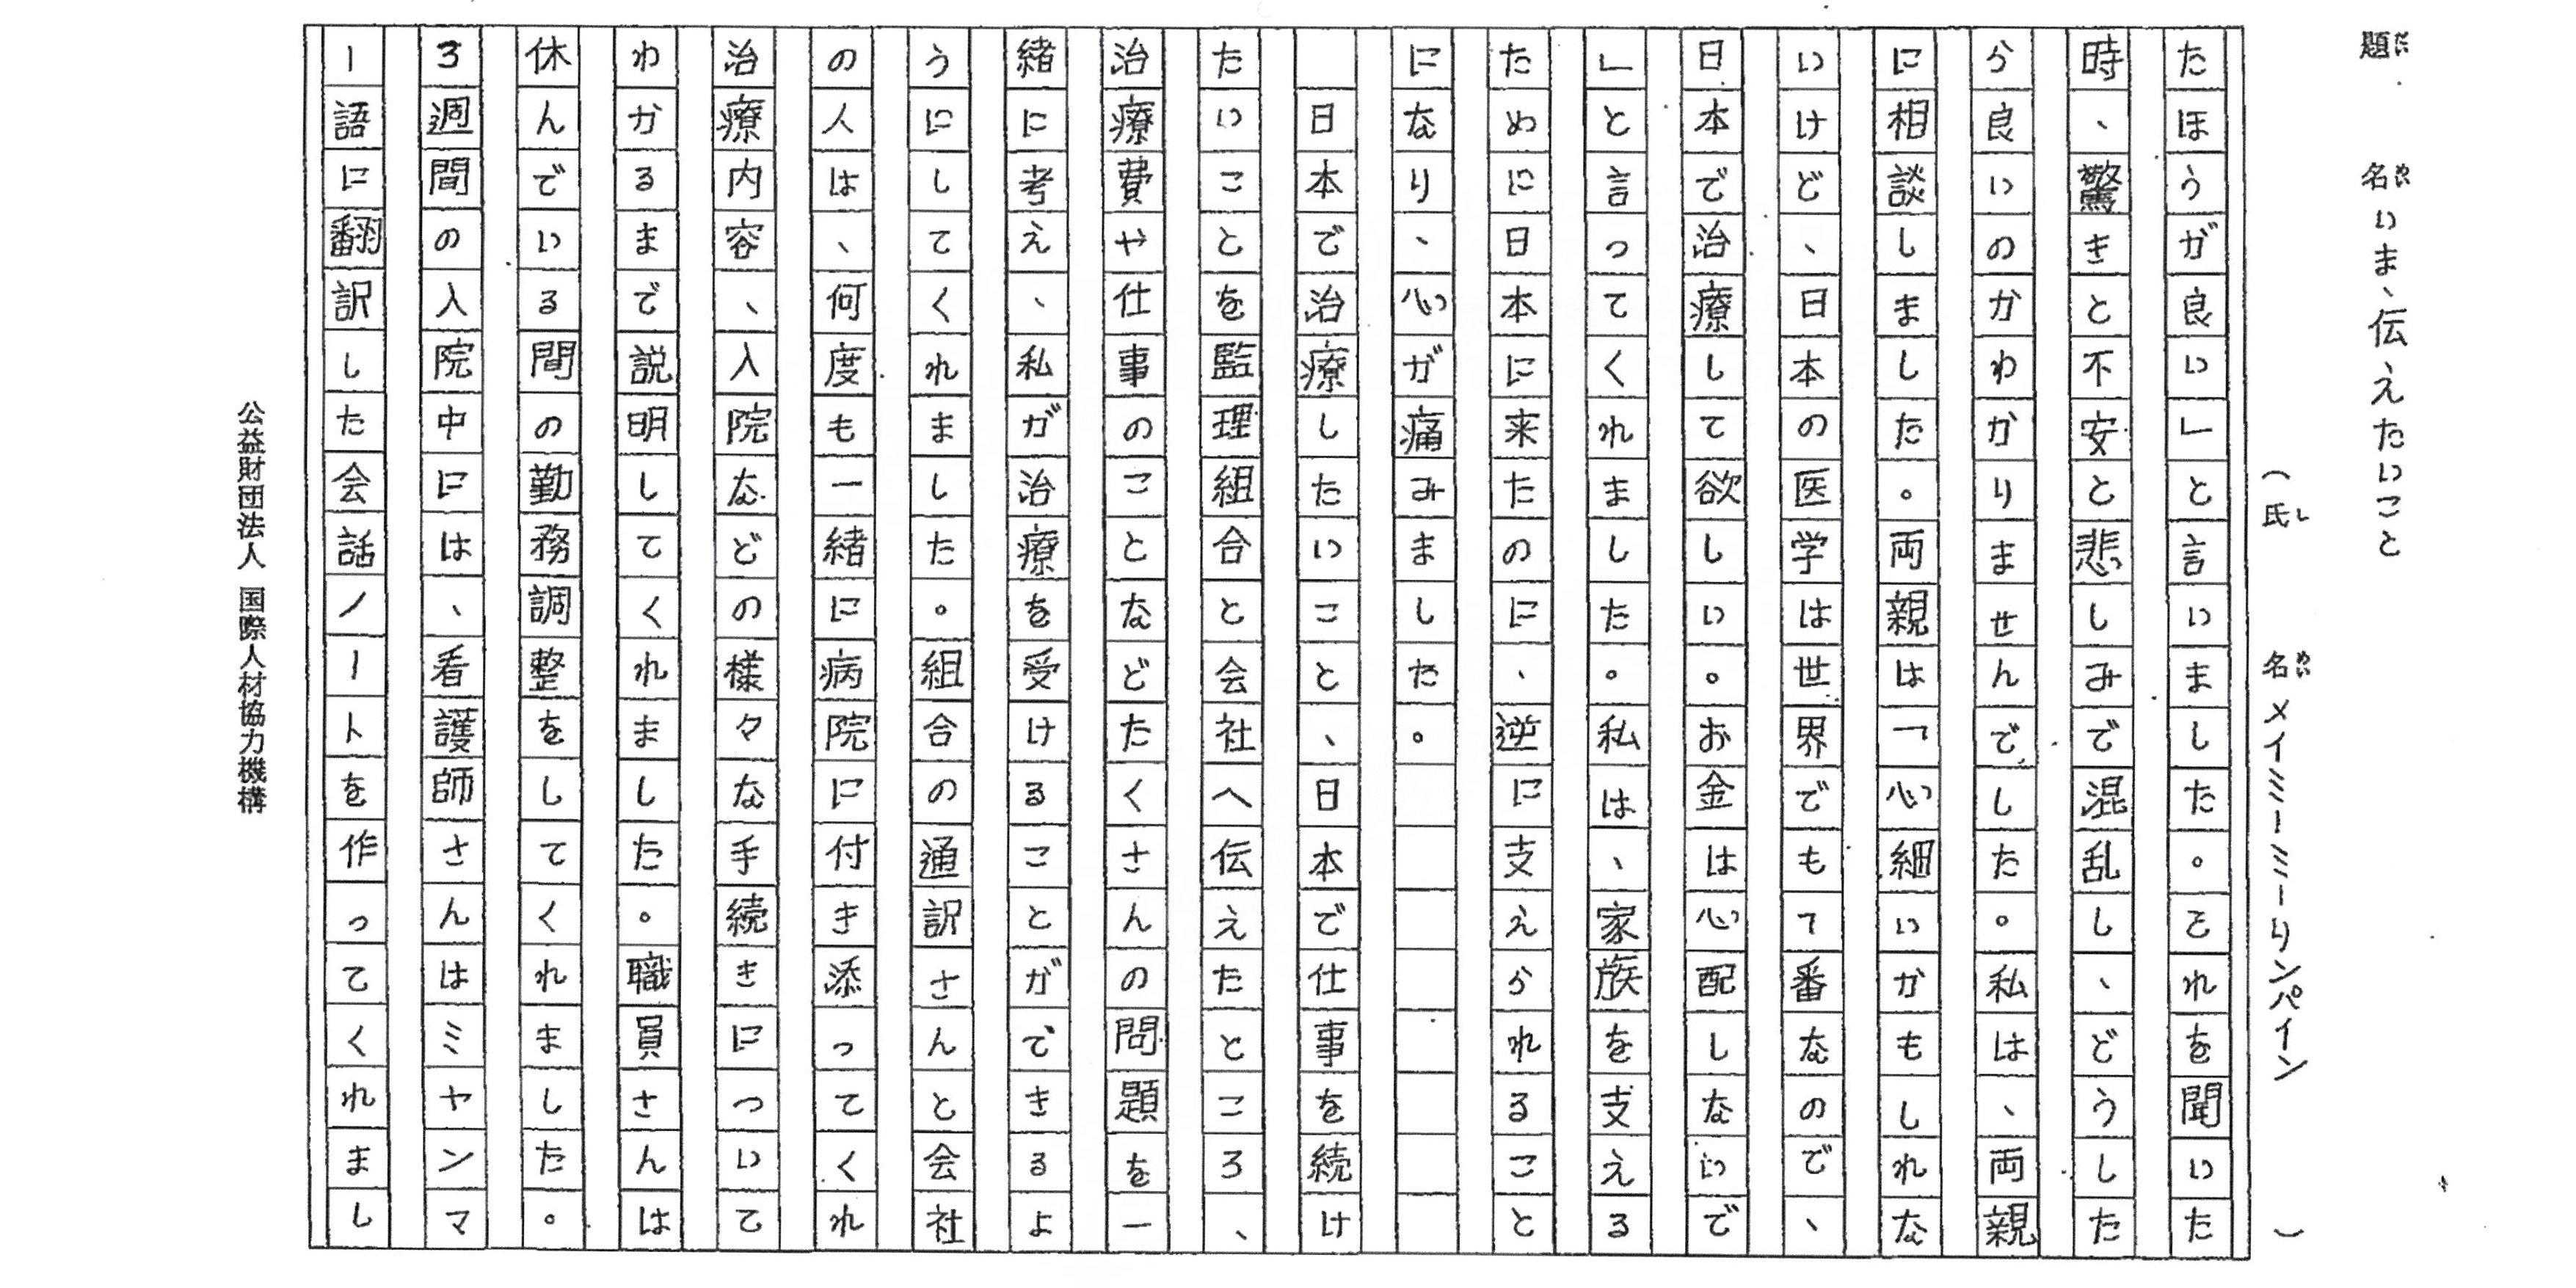 題名 いま、伝えたいこと
だい めい
(氏名 メイミーミーリンパイン)
し めい
たほうが良い」と言いました。それを聞いた
時、驚きと不安と悲しみで混乱し、どうした
ら良いのかわかりませんでした。私は、両親
に相談しました。両親は「心細いかもしれな
いけど、日本の医学は世界でも1番なので、
日本で治療して欲しい。お金は心配しないで
」と言ってくれました。私は、家族を支える
ために日本に来たのに、逆に支えられること
になり、心が痛みました。
日本で治療したいこと、日本で仕事を続け
たいことを監理組合と会社へ伝えたところ、
治療費や仕事のことなどたくさんの問題を一
緒に考え、私が治療を受けることができるよ
うにしてくれました。組合の通訳さんと会社
の人は、何度も一緒に病院に付き添ってくれ
治療内容、入院などの様々な手続きについて
わかるまで説明してくれました。職員さんは
休んでいる間の勤務調整をしてくれました。
3週間の入院中には、看護師さんはミャンマ
ー語に翻訳した会話ノートを作ってくれまし
公益財団法人 国際人材協力機構